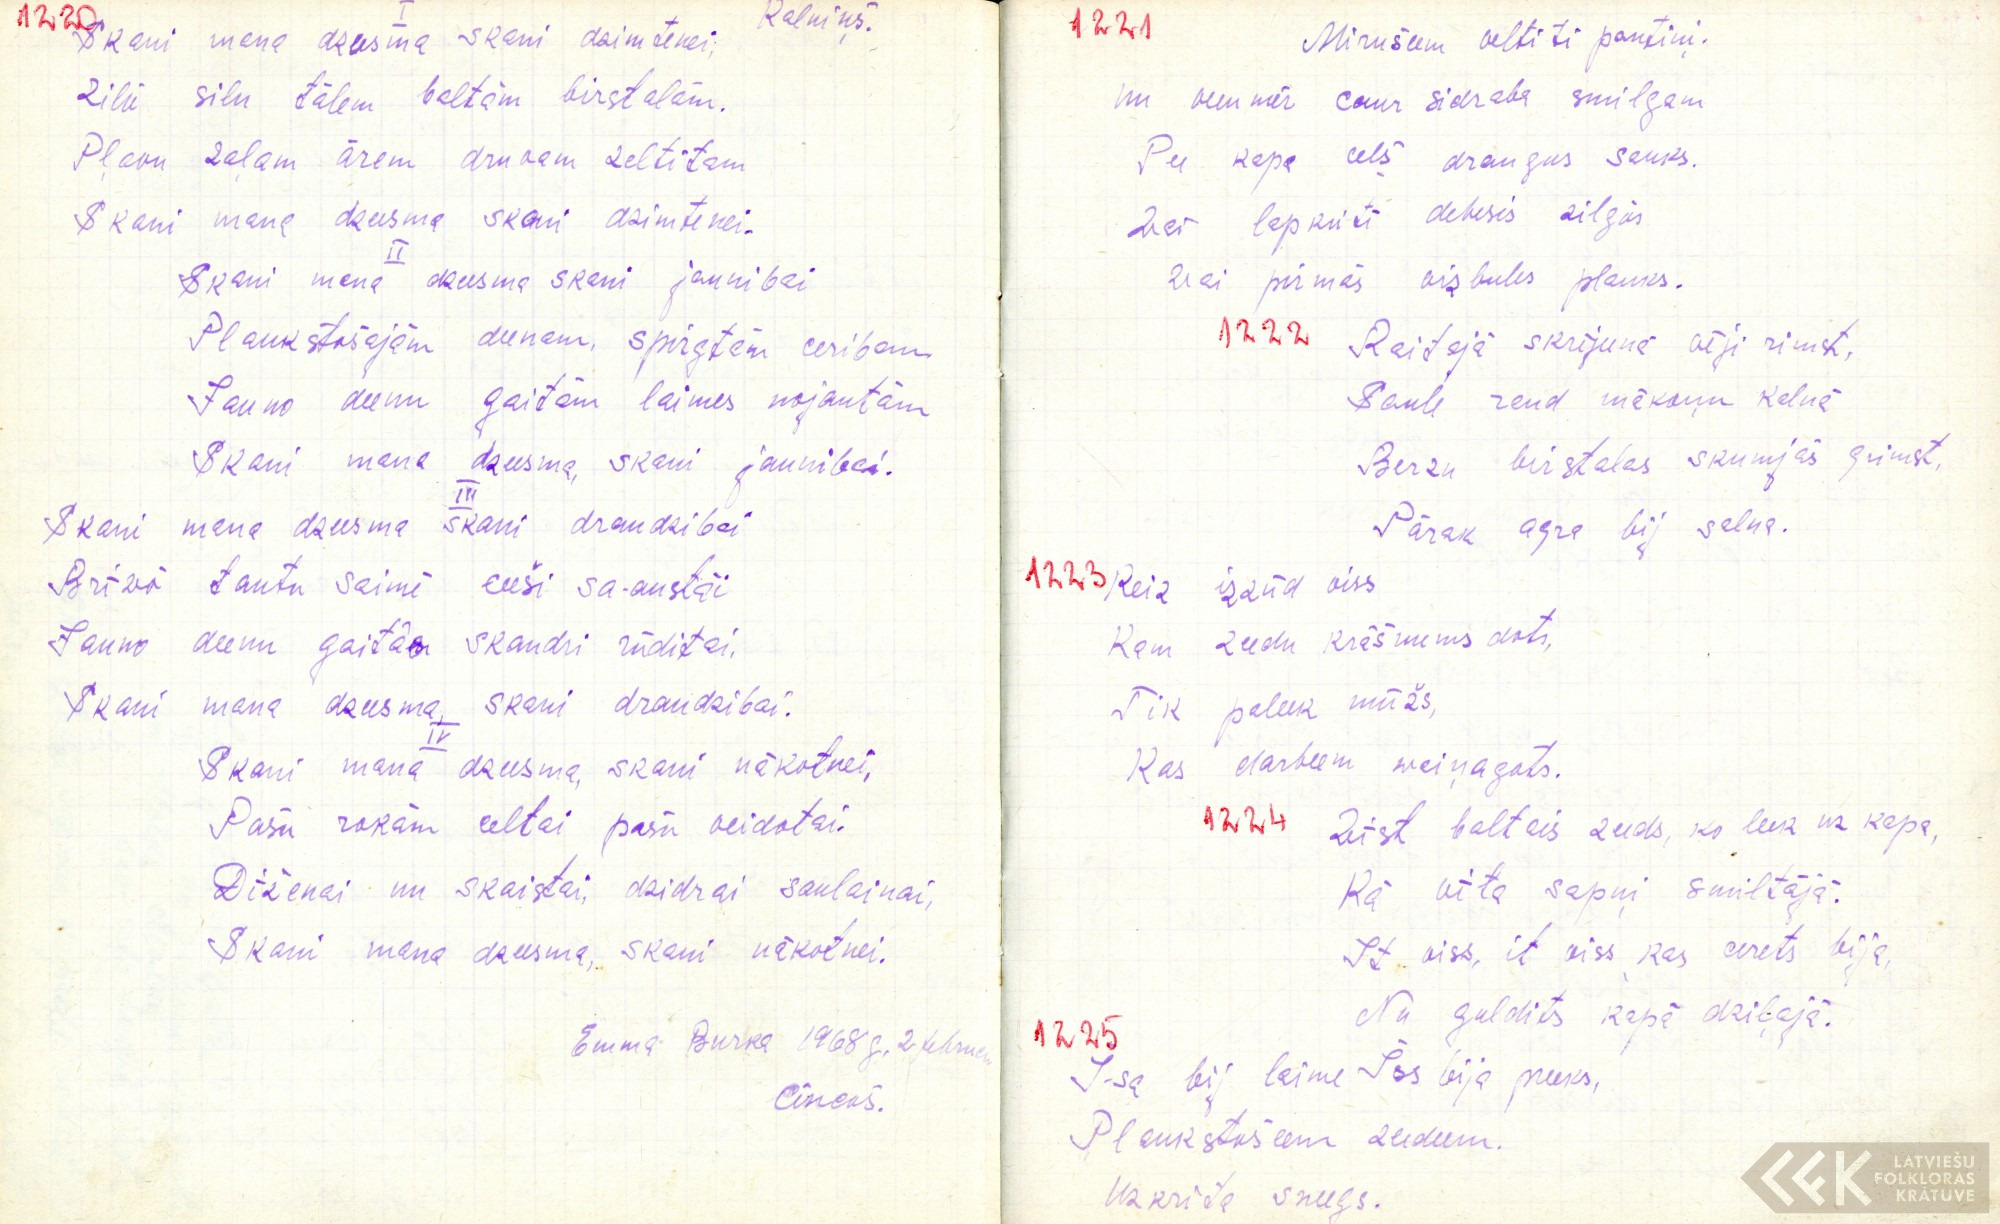 1220
I
Kalniņš.
Skani mana dzeesma skani dzimtenei;
Zilū silu tālem baltām birstalām.
Pļavu zaļam ārem druvam zeltitam
Skani mana dzeesma skani dzimtenei.
II
Skani mana dzeesma skani jaunibai
Plaukstošajām deenam, spirgtām ceribam
Jauno deenu gaitām laimes nojautām
Skani mana dzeesma, skani jaunibai.
III
Skani mana dzeesma skani draudzibai
Brīvō tautu saimē ceeši sa-austāi
Jauno deenu gaitās skandri rūditai,
Skani mana dzeesma, skani draudzibai.
IV
Skani mana dzeesma, skani nākotnei,
Pašū rokām celtai pašū veidotai.
Dižēnai un skaistai, dzidrai saulainai,
Skani mana dzeesma, skani nākotnei.
Emma Burka 1968 g. 2 februar
Cīrcoš.
1221
Mirušeem veltiti pantiņi.
un veenmēr caur sidraba smilgam
Pee kapa ceļš draugus sauks.
Vai lapkriti debesis zilgās
vai pirmās vizbules plauks.
1222
Raitajā skrējeenā vēji rimst,
Saule reud mākoņu kalnā
Berzu birstalas skumjās grimst,
Pārak agra bij salna.
1223
Reiz izzūd viss
Kam zeedu krāšnums dots,
Tik paleek mūžs,
Kas darbeem vaiņagots.
1224
Vīst baltais zeeds, ko leek uz kapa,
Kā vīta sapņi smiltājā.
It viss, it viss kas cerets bija,
Nu guldits kapā dziļajā.
1225
I-sa bij laime Īss bija preeks,
Plaukstošeem zeedeem.
Uzkrita sneegs.
LATVIEŠU
FOLKLORAS
KRĀTUVE